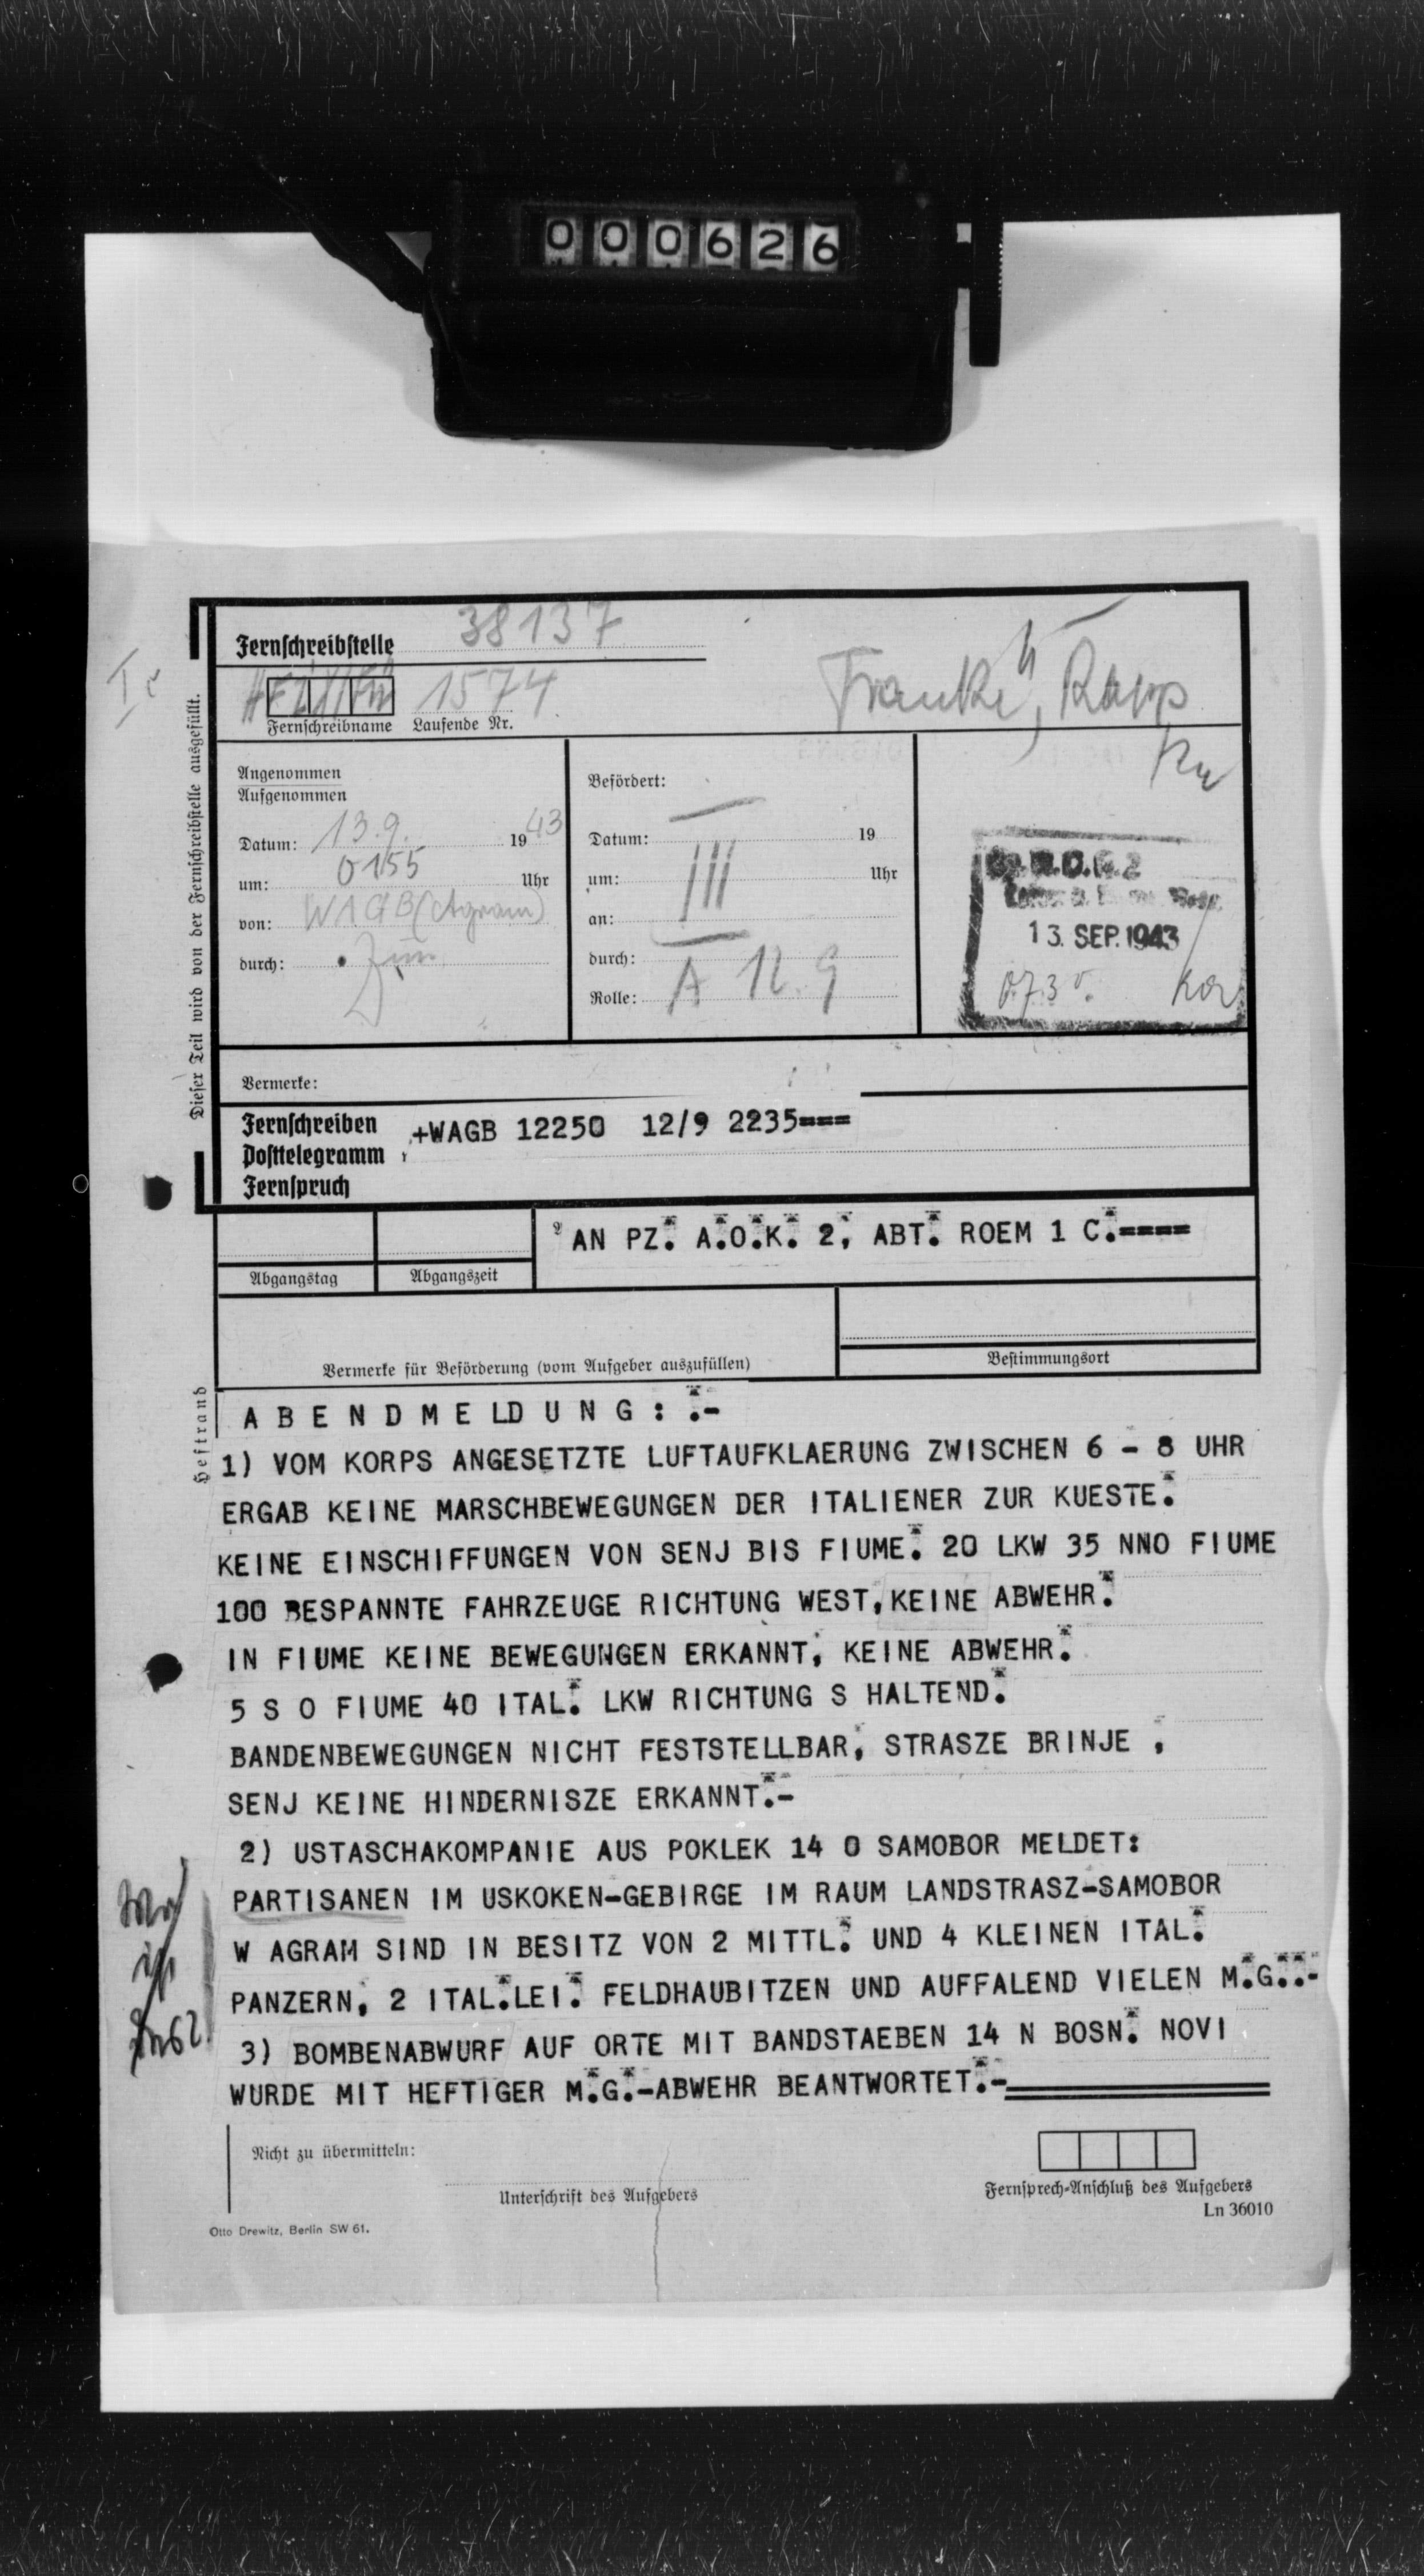 000626
Fernschreibstelle 38137
Ic
1574
Franke, Rapp
Fernschreibname Laufende Nr.
Dieser Teil wird von der Fernschreibstelle ausgefüllt.
Angenommen
Aufgenommen
Datum: 13.9. 1943
um: 0155 Uhr
von: WAGB (Agram)
durch:
Befördert:
Datum: 19
um: Uhr
an:
durch:
Rolle:
13. SEP. 1943
Vermerke:
Fernschreiben +WAGB 12250 12/9 2235===
Posttelegramm
Fernspruch
AN PZ. A.O.K. 2, ABT. ROEM 1 C.====
Abgangstag
Abgangszeit
Vermerke für Beförderung (vom Aufgeber auszufüllen)
Bestimmungsort
Heftrand
A B E N D M E LD U N G : .-
1) VOM KORPS ANGESETZTE LUFTAUFKLAERUNG ZWISCHEN 6 - 8 UHR
ERGAB KEINE MARSCHBEWEGUNGEN DER ITALIENER ZUR KUESTE.
KEINE EINSCHIFFUNGEN VON SENJ BIS FIUME. 20 LKW 35 NNO FIUME
100 BESPANNTE FAHRZEUGE RICHTUNG WEST, KEINE ABWEHR.
IN FIUME KEINE BEWEGUNGEN ERKANNT, KEINE ABWEHR.
5 S O FIUME 40 ITAL. LKW RICHTUNG S HALTEND.
BANDENBEWEGUNGEN NICHT FESTSTELLBAR, STRASZE BRINJE ,
SENJ KEINE HINDERNISZE ERKANNT.-
2) USTASCHAKOMPANIE AUS POKLEK 14 O SAMOBOR MELDET:
PARTISANEN IM USKOKEN-GEBIRGE IM RAUM LANDSTRASZ-SAMOBOR
W AGRAM SIND IN BESITZ VON 2 MITTL. UND 4 KLEINEN ITAL.
PANZERN, 2 ITAL.LEI. FELDHAUBITZEN UND AUFFALEND VIELEN M.G..-
3) BOMBENABWURF AUF ORTE MIT BANDSTAEBEN 14 N BOSN. NOVI
WURDE MIT HEFTIGER M.G.-ABWEHR BEANTWORTET.-
Nicht zu übermitteln:
Unterschrift des Aufgebers
Fernsprech-Anschluß des Aufgebers
Ln 36010
Otto Drewitz, Berlin SW 61.